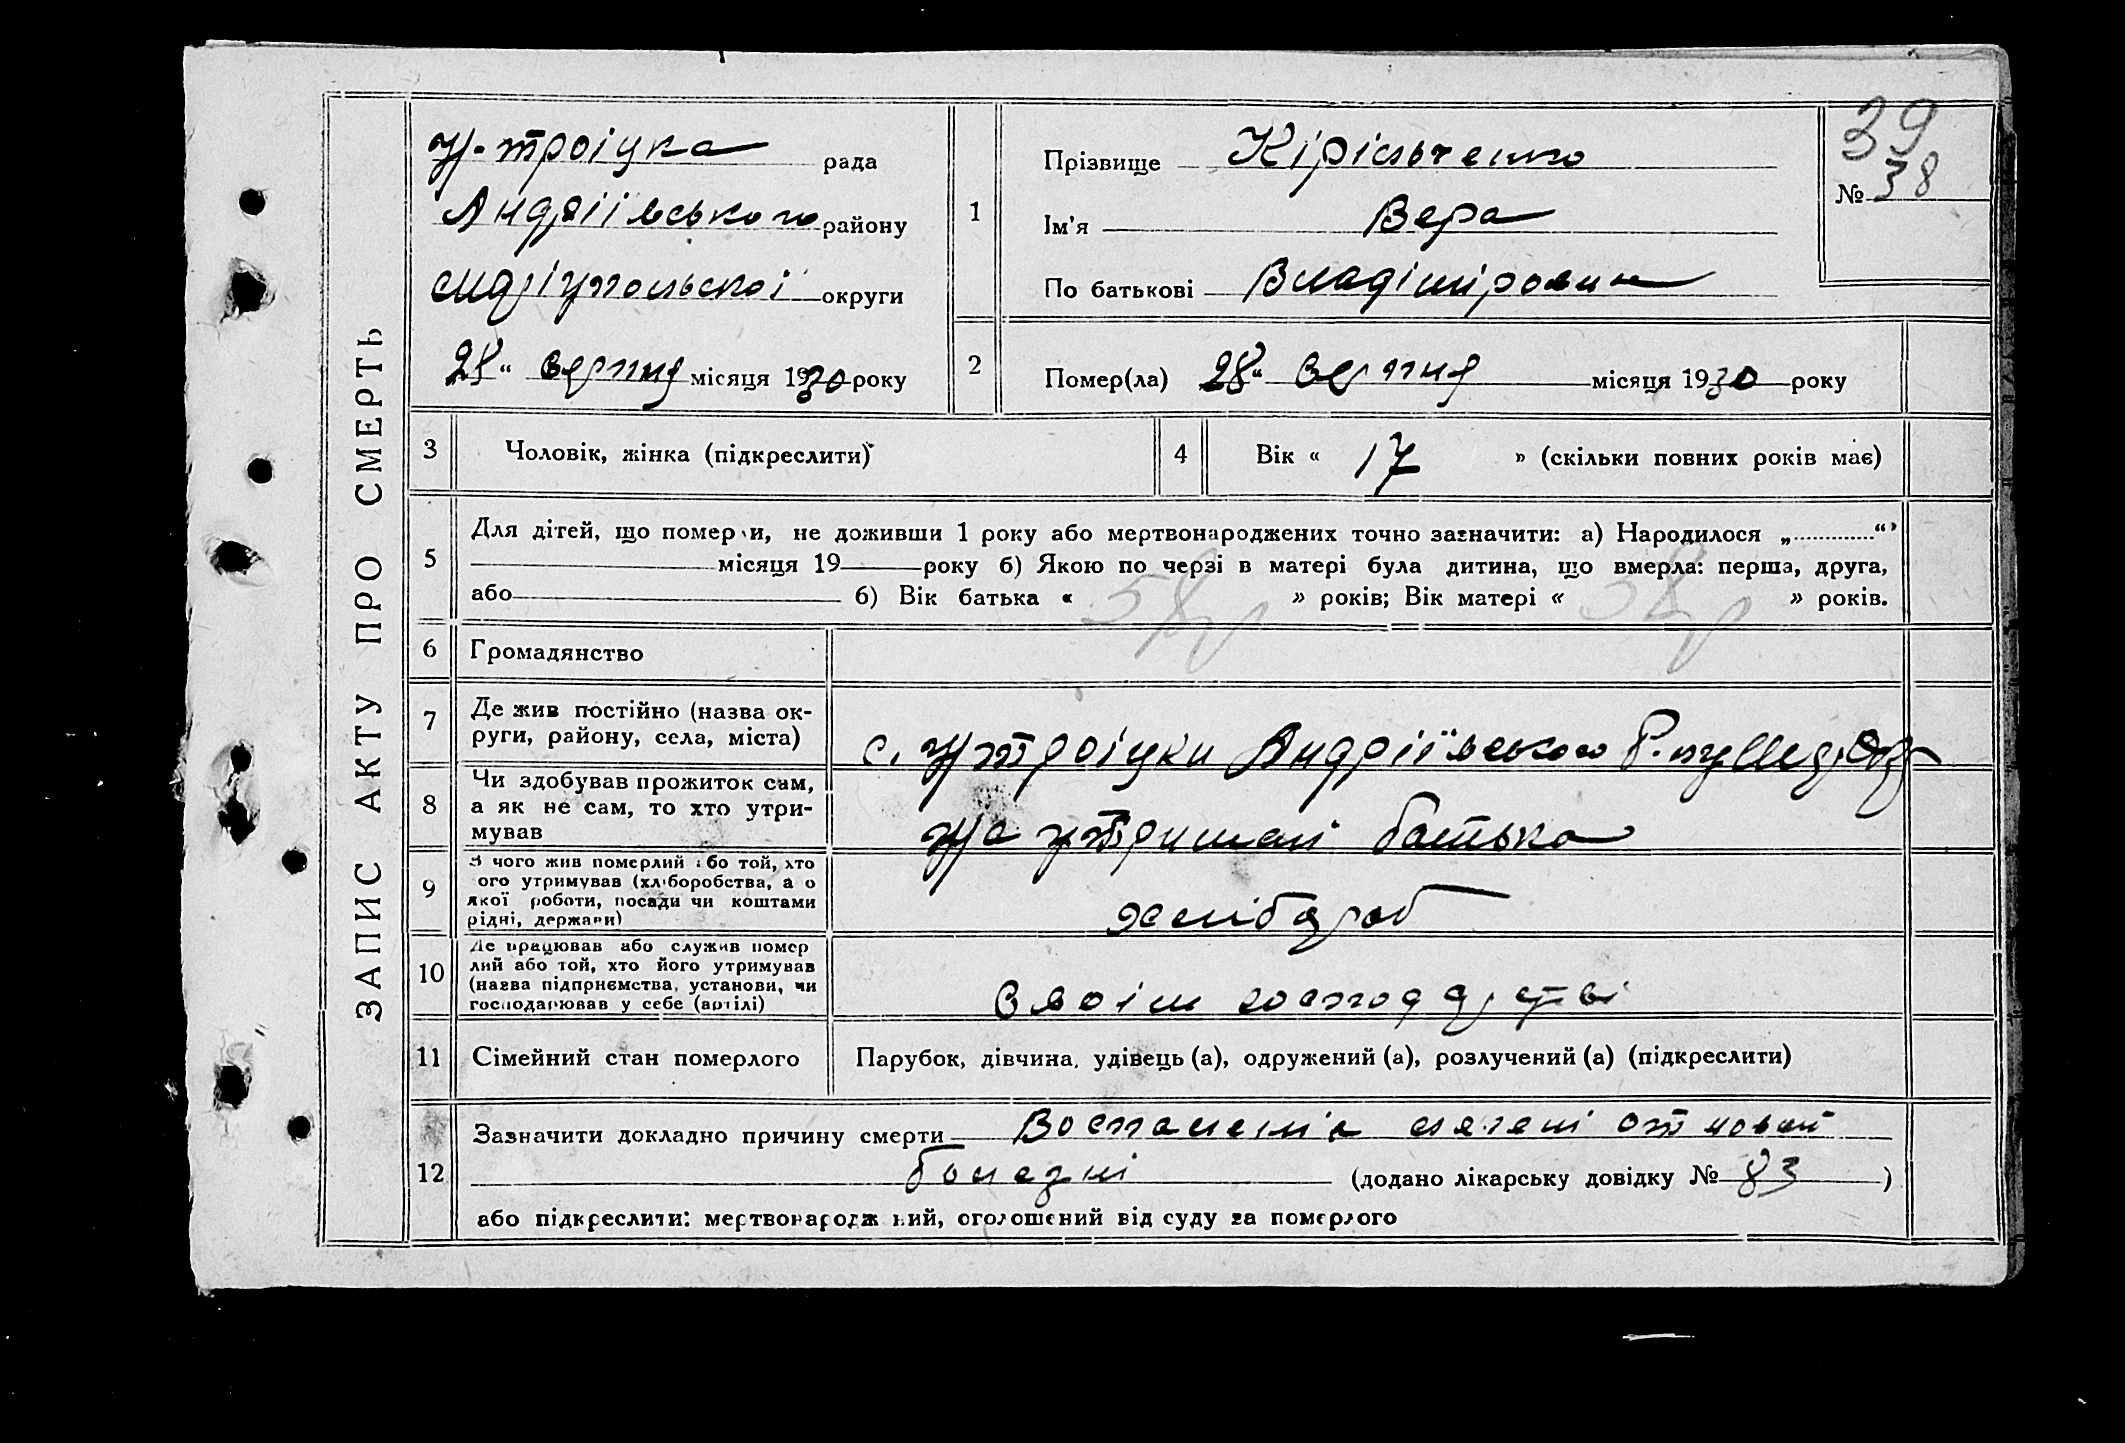 ЗАПИС АКТУ ПРО СМЕРТЬ
Н-троіцка рада
Андріівського району
округи
28 " верпня місяця 1930 року
1
Прізвище Кірільченко
Ім'я Вера
По батькові
39
№ 38
2
Помер(ла) 28 " верпня місяця 1930 року
3
Чоловік, жінка (підкреслити)
4
Вік « 17 » (скільки повних років має)
5
Для дітей, що померли, не доживши 1 року або мертвонароджених точно зазначити: а) Народилося „ “
місяця 19 року б) Якою по черзі в матері була дитина, що вмерла: перша, друга,
або б) Вік батька « 58 » років; Вік матері « 58 » років.
6
Громадянство
7
Де жив постійно (назва ок-
руги, району, села, міста)
с. Андріївського
8
Чи здобував прожиток сам,
а як не сам, то хто утри-
мував
На утримані батька
9
З чого жив померлий або той, хто
ого утримував (хліборобства, а о
якої роботи, посади чи коштами
рідні, держави)
хлібороб
10
Де працював або служив помер
лий або той, хто його утримував
(назва підприємства, установи, чи
господарював у себе (артілі)
Своім господарстві
11
Сімейний стан померлого
Парубок, дівчина, удівець (а), одружений (а), розлучений (а) (підкреслити)
12
Зазначити докладно причину смерти
болезні (додано лікарську довідку № 83 )
або підкреслити: мертвонароджений, оголошений від суду за померлого